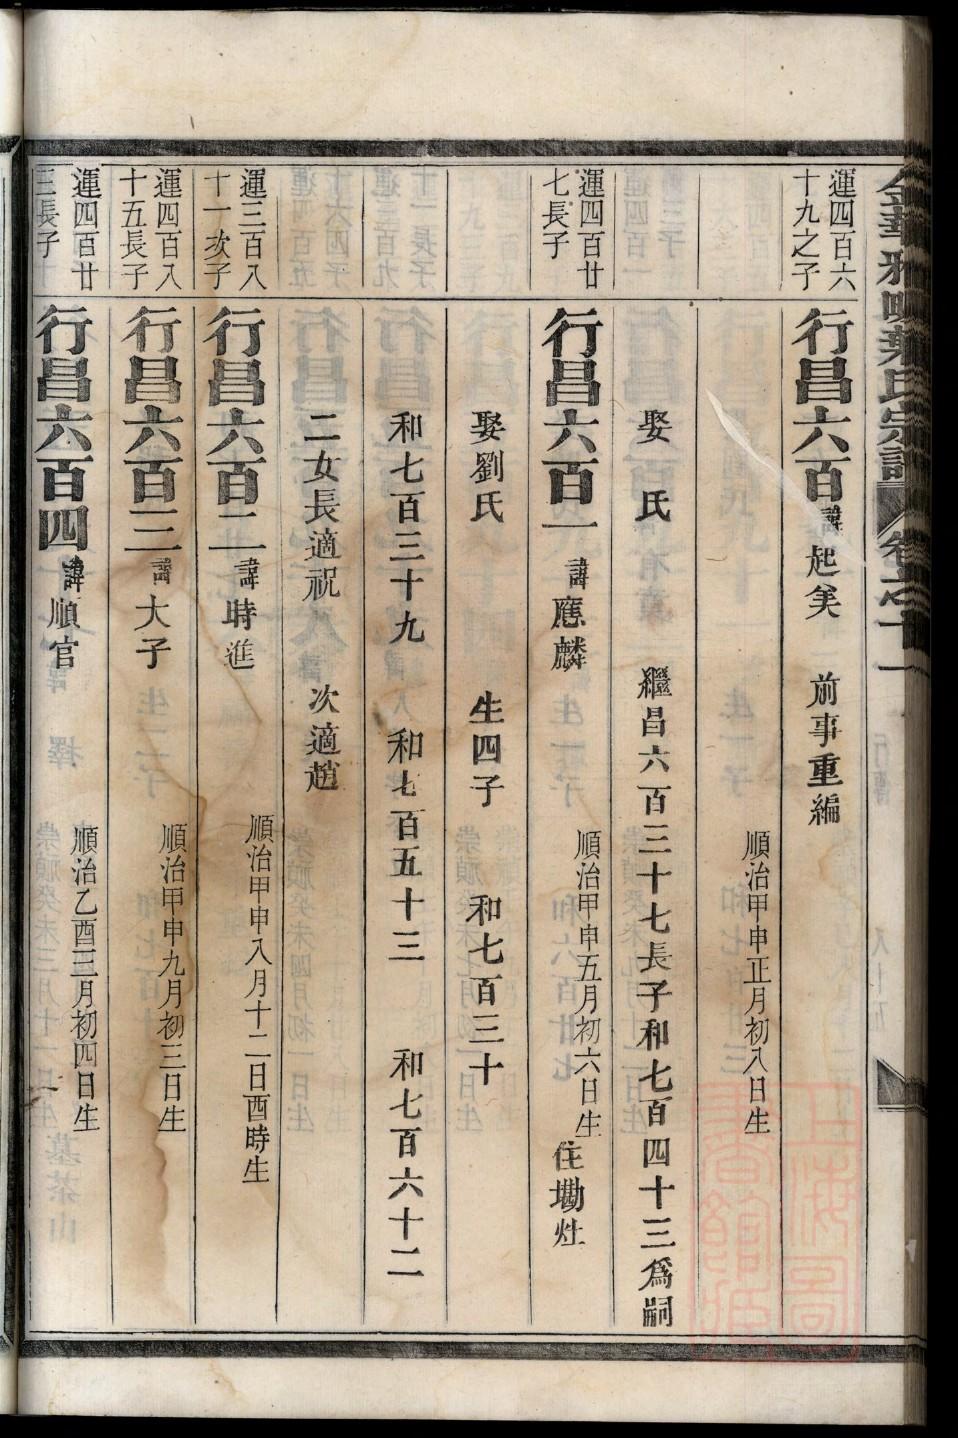 運四百六十九之子
行昌六百諱起美 前事重編
順治甲申正月初八日生
娶 氏 繼昌六百三十七長子和七百四十三為嗣
運四百廿七長子
行昌六百一諱應麟 順治甲申五月初六日生 住墈灶
娶劉氏 生四子 和七百三十
和七百三十九 和七百五十三 和七百六十二
二女長適祝 次適趙
運三百八十一次子
行昌六百二諱時進 順治甲申八月十二日酉時生
運四百八十五長子
行昌六百三諱大子 順治甲申九月初三日生
運四百廿三長子
行昌六百四諱順官 順治乙酉三月初四日生
上海圖書館藏